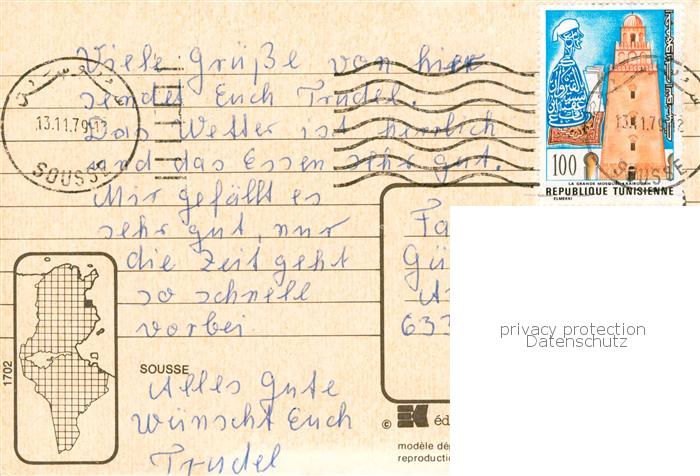 Viele Grüße von hier
sendet Euch Trudel.
Das Wetter ist herrlich
und das Essen sehr gut.
Mir gefällt es
sehr gut, nur
die Zeit geht
so schnell
vorbei.
Alles Gute
wünscht Euch
Trudel
SOUSSE
1702
13.11.79-12
SOUSSE
13.11.79-12
SOUSSE
100
LA GRANDE MOSQUEE KAIROUAN
REPUBLIQUE TUNISIENNE
ELMEKKI
Fa
Gü
633
privacy protection
Datenschutz
© éd
modèle dé
reproductio